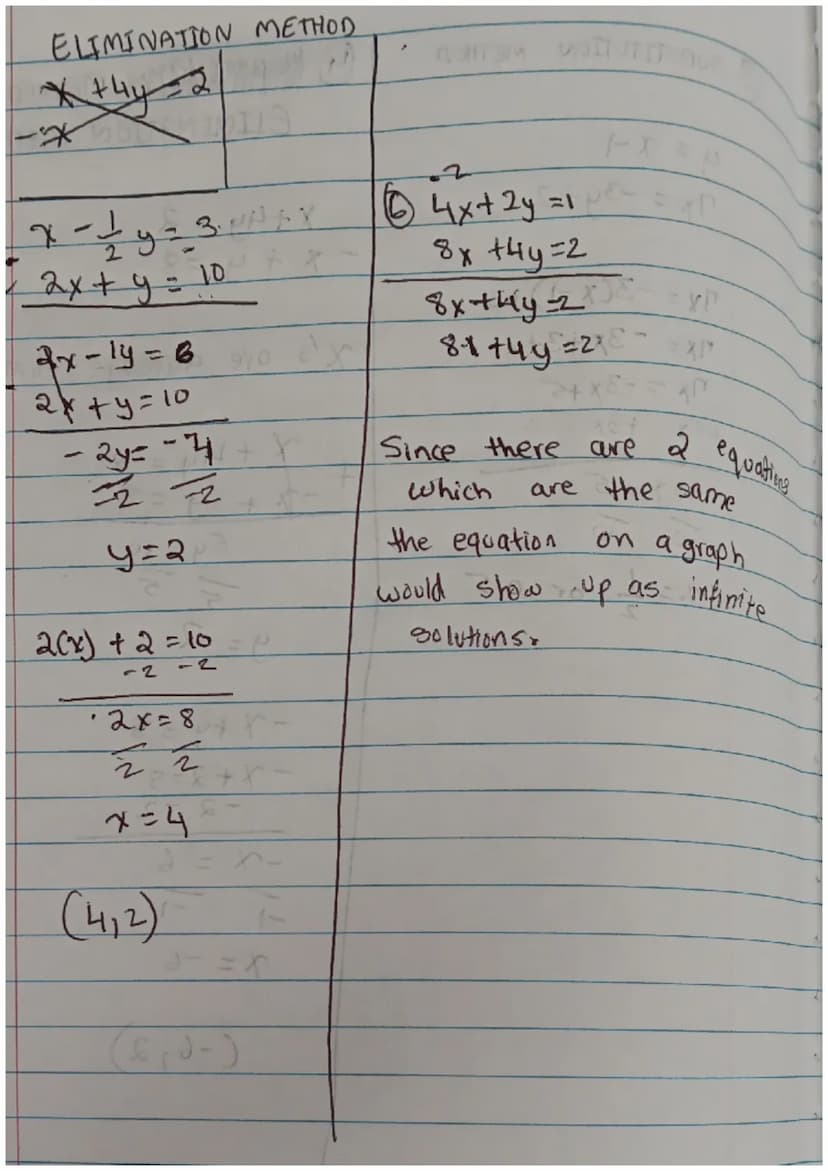 ELIMINATION METHOD
x + 4y = 2
-x
x - 1/2 y = 3
2x + y = 10
2x - 1y = 6
2x + y = 10
- 2y = -4
-2 -2
y = 2
2(x) + 2 = 10
-2 -2
2x = 8
2 2
x = 4
(4,2)
·2
⑥ 4x + 2y = 1
8x + 4y = 2
8x + 4y = 2
8x + 4y = 2
Since there are 2 equations
which are the same
the equation on a graph
would show up as infinite
solutions.